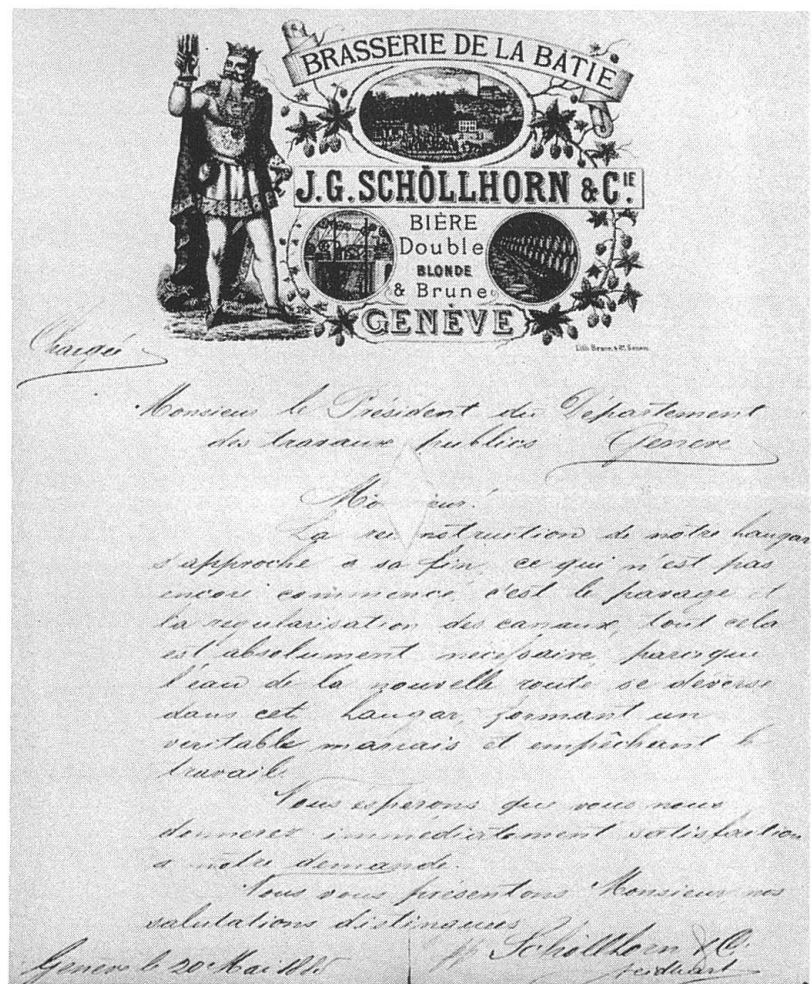 BRASSERIE DE LA BÂTIE
J.G. SCHÖLLHORN & CIE.
BIÈRE
Double
BLONDE
& Brune
GENÈVE
Chargée
Monsieur le Président du Département
des travaux publics Genève
Monsieur!
La reconstruction de notre hangar
s'approche à sa fin, ce qui n'est pas
encore commencé, c'est le pavage et
la regularisation des canaux, tout cela
est absolument necessaire parceque
l'eau de la nouvelle route se deverse
dans cet hangar, formant un
veritable marais et empêchant le
travail.
Nous esperons que vous nous
donnerez immédiatement satisfaction
a notre demande.
Nous vous présentons Monsieur nos
salutations distinguées
Genève le 20 Mai
Schöllhorn & C.